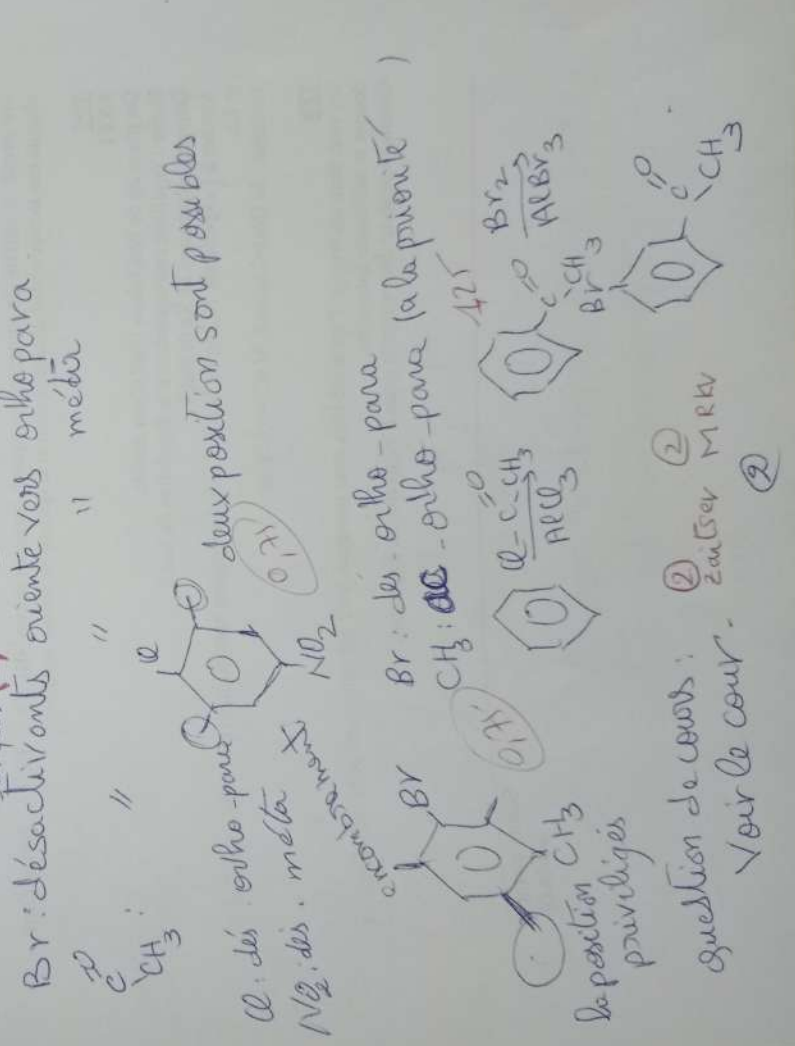 Br : désactivants oriente vers orthopara.
C=O
CH3 : " " " méta
Cl : dés . ortho-para
NO2 : dés . méta
Cl
NO2
deux position sont possibles
0,75
encombrement
Br
CH3
la position
priviligés
0,75
Br : dés - ortho - para
CH3 : ac - ortho - para (a la priorité)
Cl-C-CH3
O
AlCl3
C=O
CH3
1,25
Br2
AlBr3
Br
C=O
CH3
question de cours :
Voir le cour.
② ②
Zaitsev MRKV
②